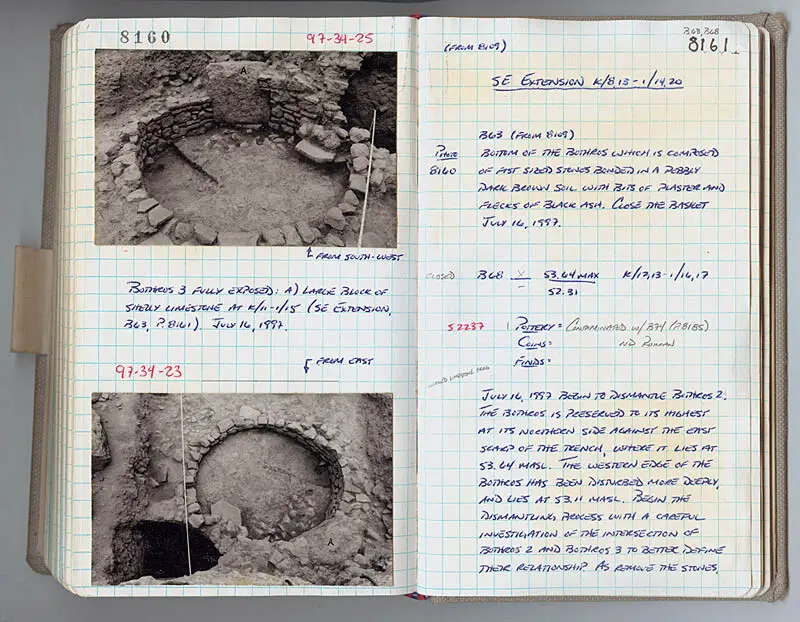 8160
97-34-25
A
↑ FROM SOUTH-WEST
BOTHROS 3 FULLY EXPOSED: A) LARGE BLOCK OF
SHELLY LIMESTONE AT K/11-1/15 (SE EXTENSION,
B63, P.8161) JULY 16, 1997.
FROM EAST
97-34-23
A
B63, B68
8161
(FROM 8109)
SE EXTENSION K/8,13-1/14,20
B63 (FROM 8109)
PHOTO
8160
BOTTOM OF THE BOTHROS WHICH IS COMPOSED
OF FIST SIZED STONES BONDED IN A PEBBLY
DARK BROWN SOIL WITH BITS OF PLASTER AND
FLECKS OF BLACK ASH. CLOSE THE BASKET
JULY 16, 1997.
CLOSED B68 Y 53.64 MAX K/17,13-1/16,17
- 52.31
52237 1 POTTERY = CONTAMINATED W/ B74 (P.8185)
COINS = ND ROMAN
FINDS =
JULY 16, 1997 BEGIN TO DISMANTLE BOTHROS 2.
THE BOTHROS IS PRESERVED TO ITS HIGHEST
AT ITS NORTHERN SIDE AGAINST THE EAST
SCARP OF THE TRENCH, WHERE IT LIES AT
53.64 MASL. THE WESTERN EDGE OF THE
BOTHROS HAS BEEN DISTURBED MORE DEEPLY,
AND LIES AT 53.11 MASL. BEGIN THE
DISMANTLING PROCESS WITH A CAREFUL
INVESTIGATION OF THE INTERSECTION OF
BOTHROS 2 AND BOTHROS 3 TO BETTER DEFINE
THEIR RELATIONSHIP. AS REMOVE THE STONES,